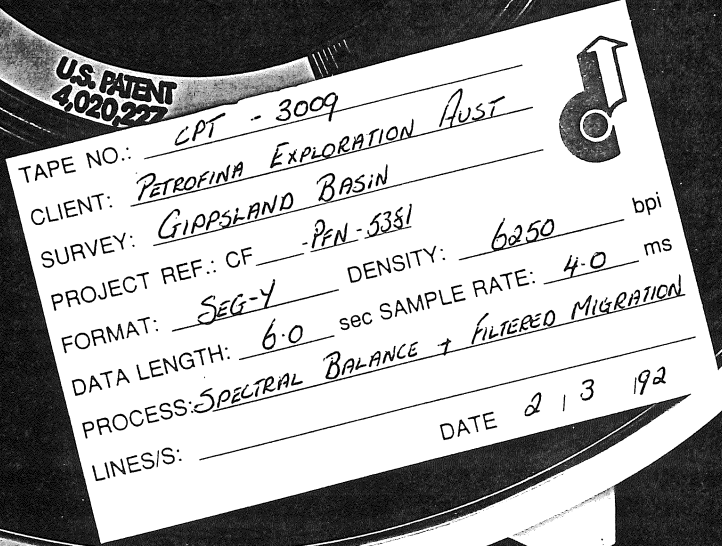 U.S. PATENT
4,020,227
TAPE NO.: CPT - 3009
CLIENT: PETROFINA EXPLORATION AUST
SURVEY: GIPPSLAND BASIN
PROJECT REF.: CF -PFN-5381
FORMAT: SEG-Y DENSITY: 6250 bpi
DATA LENGTH: 6.0 sec SAMPLE RATE: 4.0 ms
PROCESS: SPECTRAL BALANCE + FILTERED MIGRATION
LINES/S:
DATE 2 / 3 /92